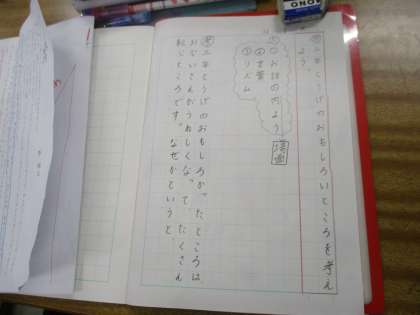 MONO
三年とうげのおもしろいところを考え
よう。
①お話の内よう
②言葉
③リズム
場面
三年とうげのおもしろかったところは、
おじいさんがうれしくなって、たくさん
転ところです。なぜかというと、